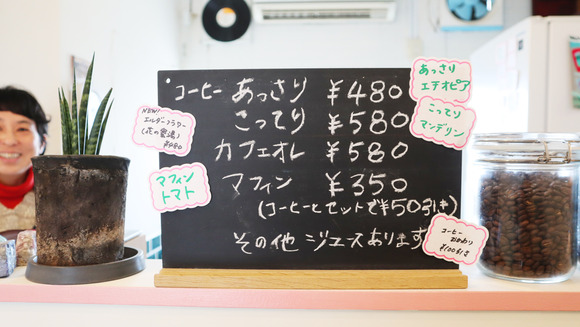 ・コーヒー あっさり ¥480
こってり ¥580
カフェオレ ¥580
マフィン ¥350
(コーヒーとセットで¥50引き)
その他 ジュースあります
あっさり
エチオピア
こってり
マンデリン
NEW!
エルダーフラワー
¥480
マフィン
トマト
コーヒー
おかわり
¥100引き